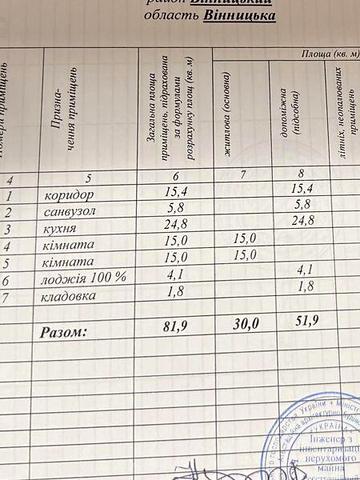 район Вінницький
область Вінницька
Номери приміщень
Призна-
чення приміщень
Загальна площа
приміщень, підрахована
за формулами
розрахунку площ (кв. м)
Площа (кв. м)
житлова (основна)
допоміжна
(підсобна)
літніх, неопалюваних
приміщень
4 5 6 7 8
1 коридор 15,4 15,4
2 санвузол 5,8 5,8
3 кухня 24,8 24,8
4 кімната 15,0 15,0
5 кімната 15,0 15,0
6 лоджія 100 % 4,1 4,1
7 кладовка 1,8 1,8
Разом: 81,9 30,0 51,9
УКРАЇНА
Інженер з
інвентаризації
нерухомого
майна